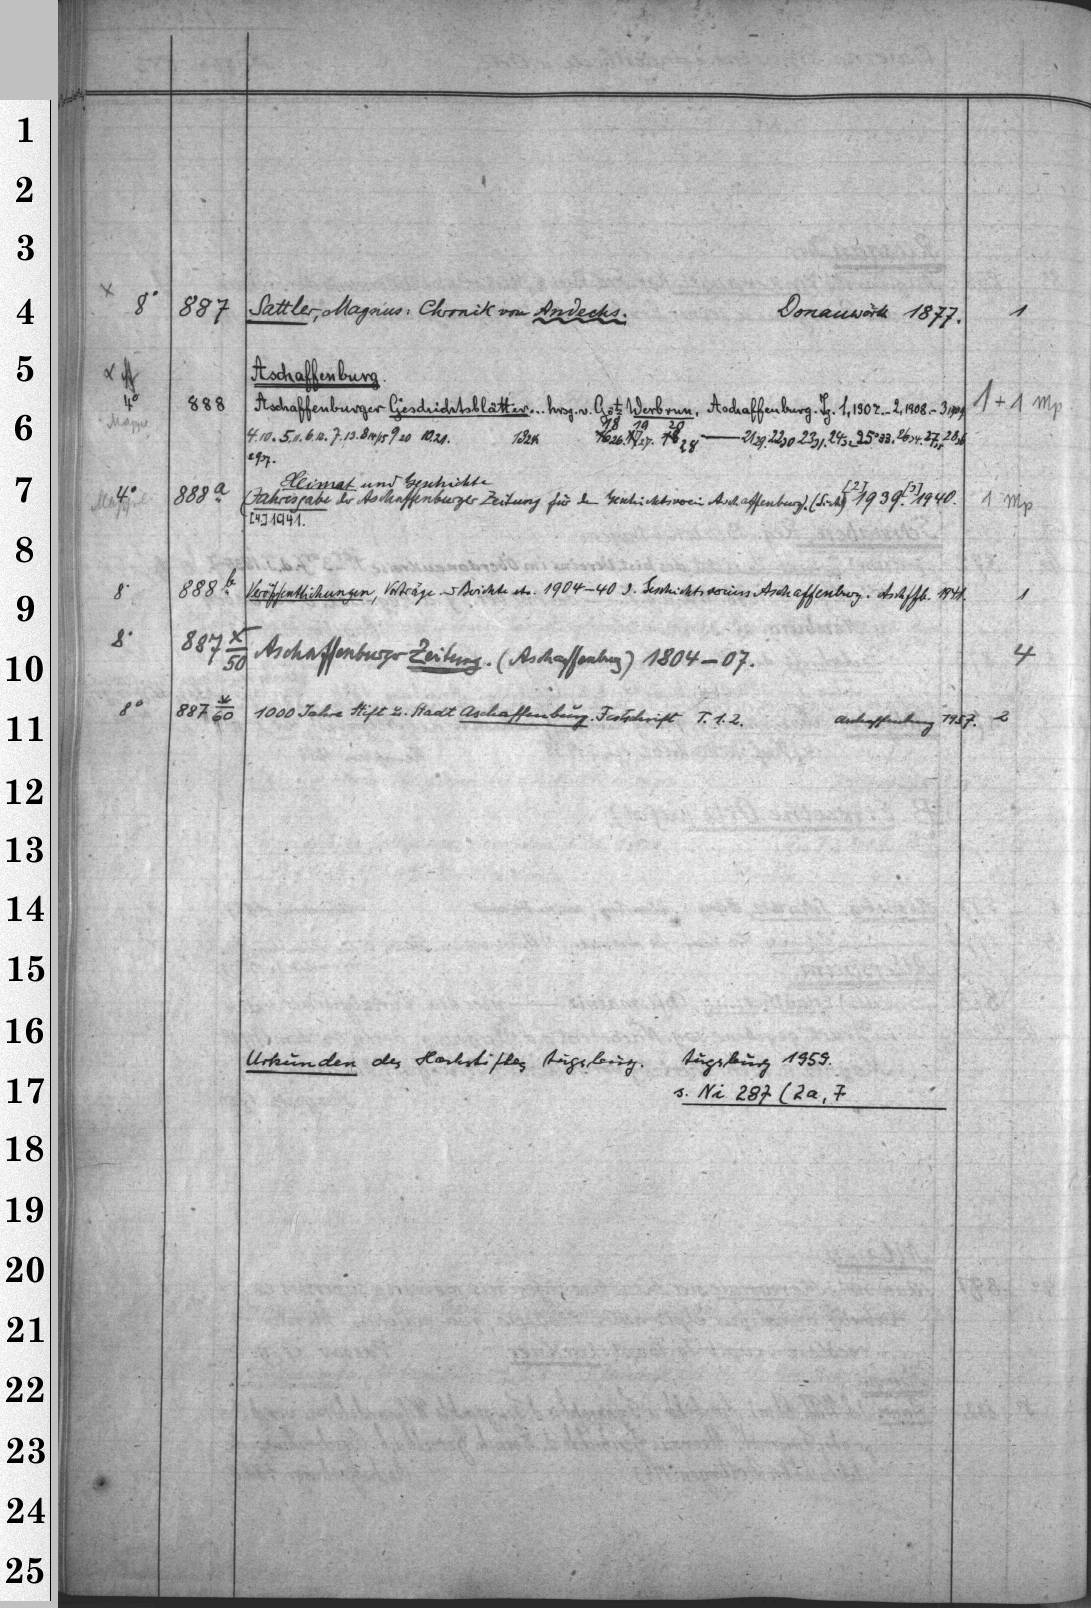 1
2
3
4
x 8° 887 Sattler, Magnus: Chronik von Andechs. Donauwörth 1877. 1
5
x
Aschaffenburg.
4° 888 Aschaffenburger Geschichtsblätter... hrsg. v. Götz Werbrun, Aschaffenburg. Jg. 1,1907. - 2,1908. - 3,1909 1 + 1 Mp
Mappe
6
18 19 20
7
Heimat und Geschichte
4° 888 a (Jahresgabe der Aschaffenburger Zeitung für den Geschichtsverein Aschaffenburg). [2] 1939. [3] 1940. 1 Mp
Mappe
[4] 1941.
8
8° 888 b Veröffentlichungen, Vorträge u. Berichte etc. 1904-40 d. Geschichtsvereins Aschaffenburg. Aschffb. 1941. 1
9
8° 887 x/50 Aschaffenburger Zeitung. (Aschaffenburg) 1804-07. 4
10
8° 887 x/60 1000 Jahre Stift u. Stadt Aschaffenburg. Festschrift T. 1.2. Aschaffenburg 1957. 2
11
12
13
14
15
16
Urkunden des Hochstiftes Augsburg. Augsburg 1959.
17
s. Ni 287 (2a, 7
18
19
20
21
22
23
24
25